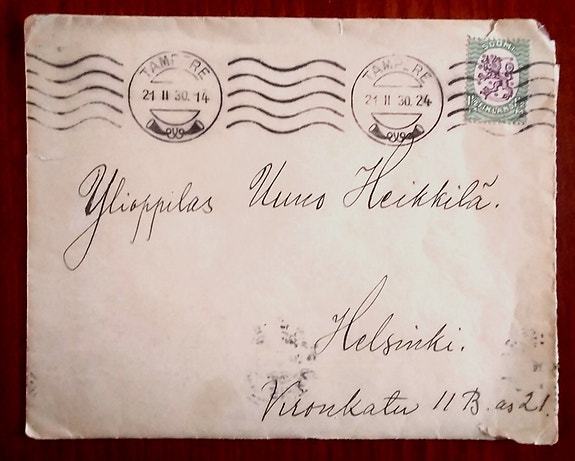 TAMPERE
21 II 30.14
TAMPERE
21 II 30.24
SUOMI
FINLAND
Ylioppilas Uuno Heikkilä.
Helsinki.
Vironkatu 11 B. as 21.